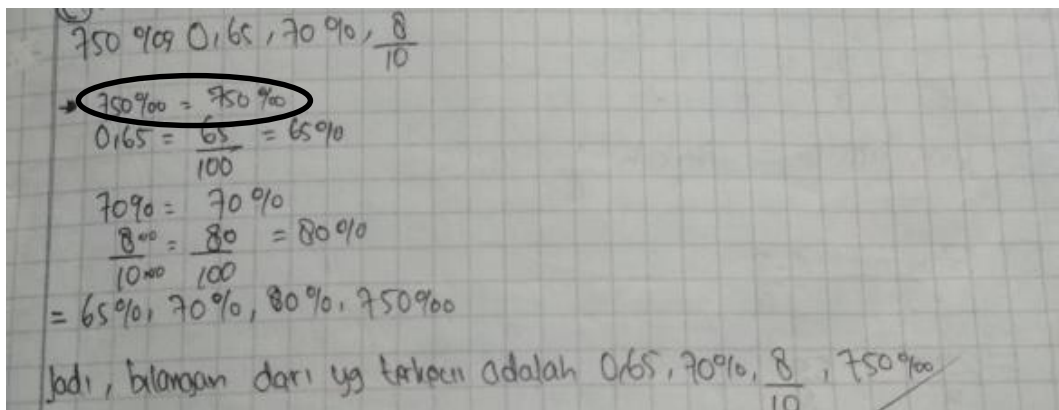 750 ‰, 0,65, 70 %, 8/10
→ 750‰ = 750‰
0,65 = 65/100 = 65%
70% = 70 %
8/10 = 80/100 = 80%
= 65%, 70%, 80%, 750‰
Jadi, bilangan dari yg terkecil adalah 0,65, 70%, 8/10, 750‰